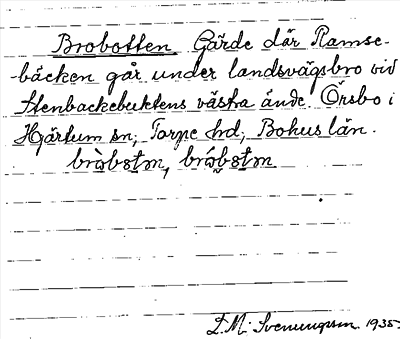 Brobotten. Gärde där Ramse-
-bäcken går under landsvägsbro vid
Stenbackebuktens västra ände. Örsbo i
Hjärtum sn, Torpe hd, Bohus län.
L. M. Svenungsson. 1935.